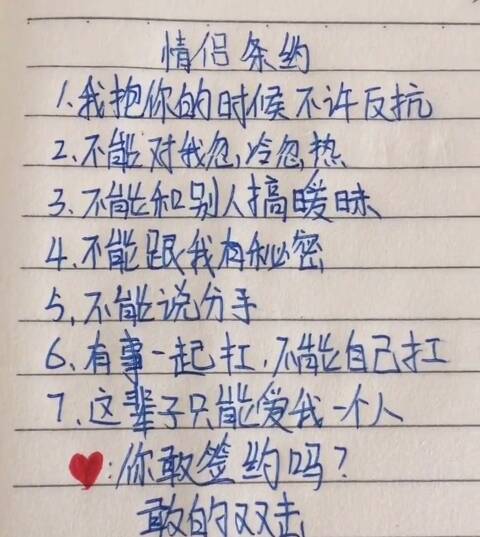 情侣条约
1.我抱你的时候不许反抗
2.不能对我忽冷忽热
3.不能和别人搞暧昧
4.不能跟我有秘密
5.不能说分手
6.有事一起扛.不能自己扛
7.这辈子只能爱我一个人
❤:你敢签约吗?
敢的双击